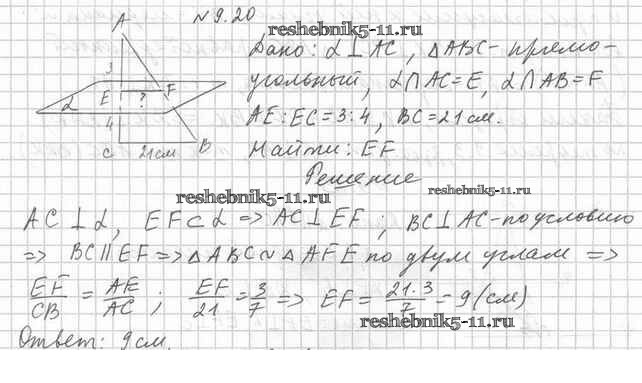 N 9.20
reshebnik5-11.ru
Дано: α ⊥ AC, △ABC - прямо-
угольный, α∩AC=E, α∩AB=F
AE:EC=3:4, BC=21см.
Найти: EF
A
3
α E ? F
4
C 21см B
Решение
reshebnik5-11.ru
reshebnik5-11.ru
AC⊥α, EF⊂α => AC⊥EF; BC⊥AC-по условию
=> BC∥EF => △ABC∼△AFE по двум углам =>
EF/CB = AE/AC; EF/21 = 3/7 => EF = 21·3/7 = 9 (см)
reshebnik5-11.ru
Ответ: 9см.